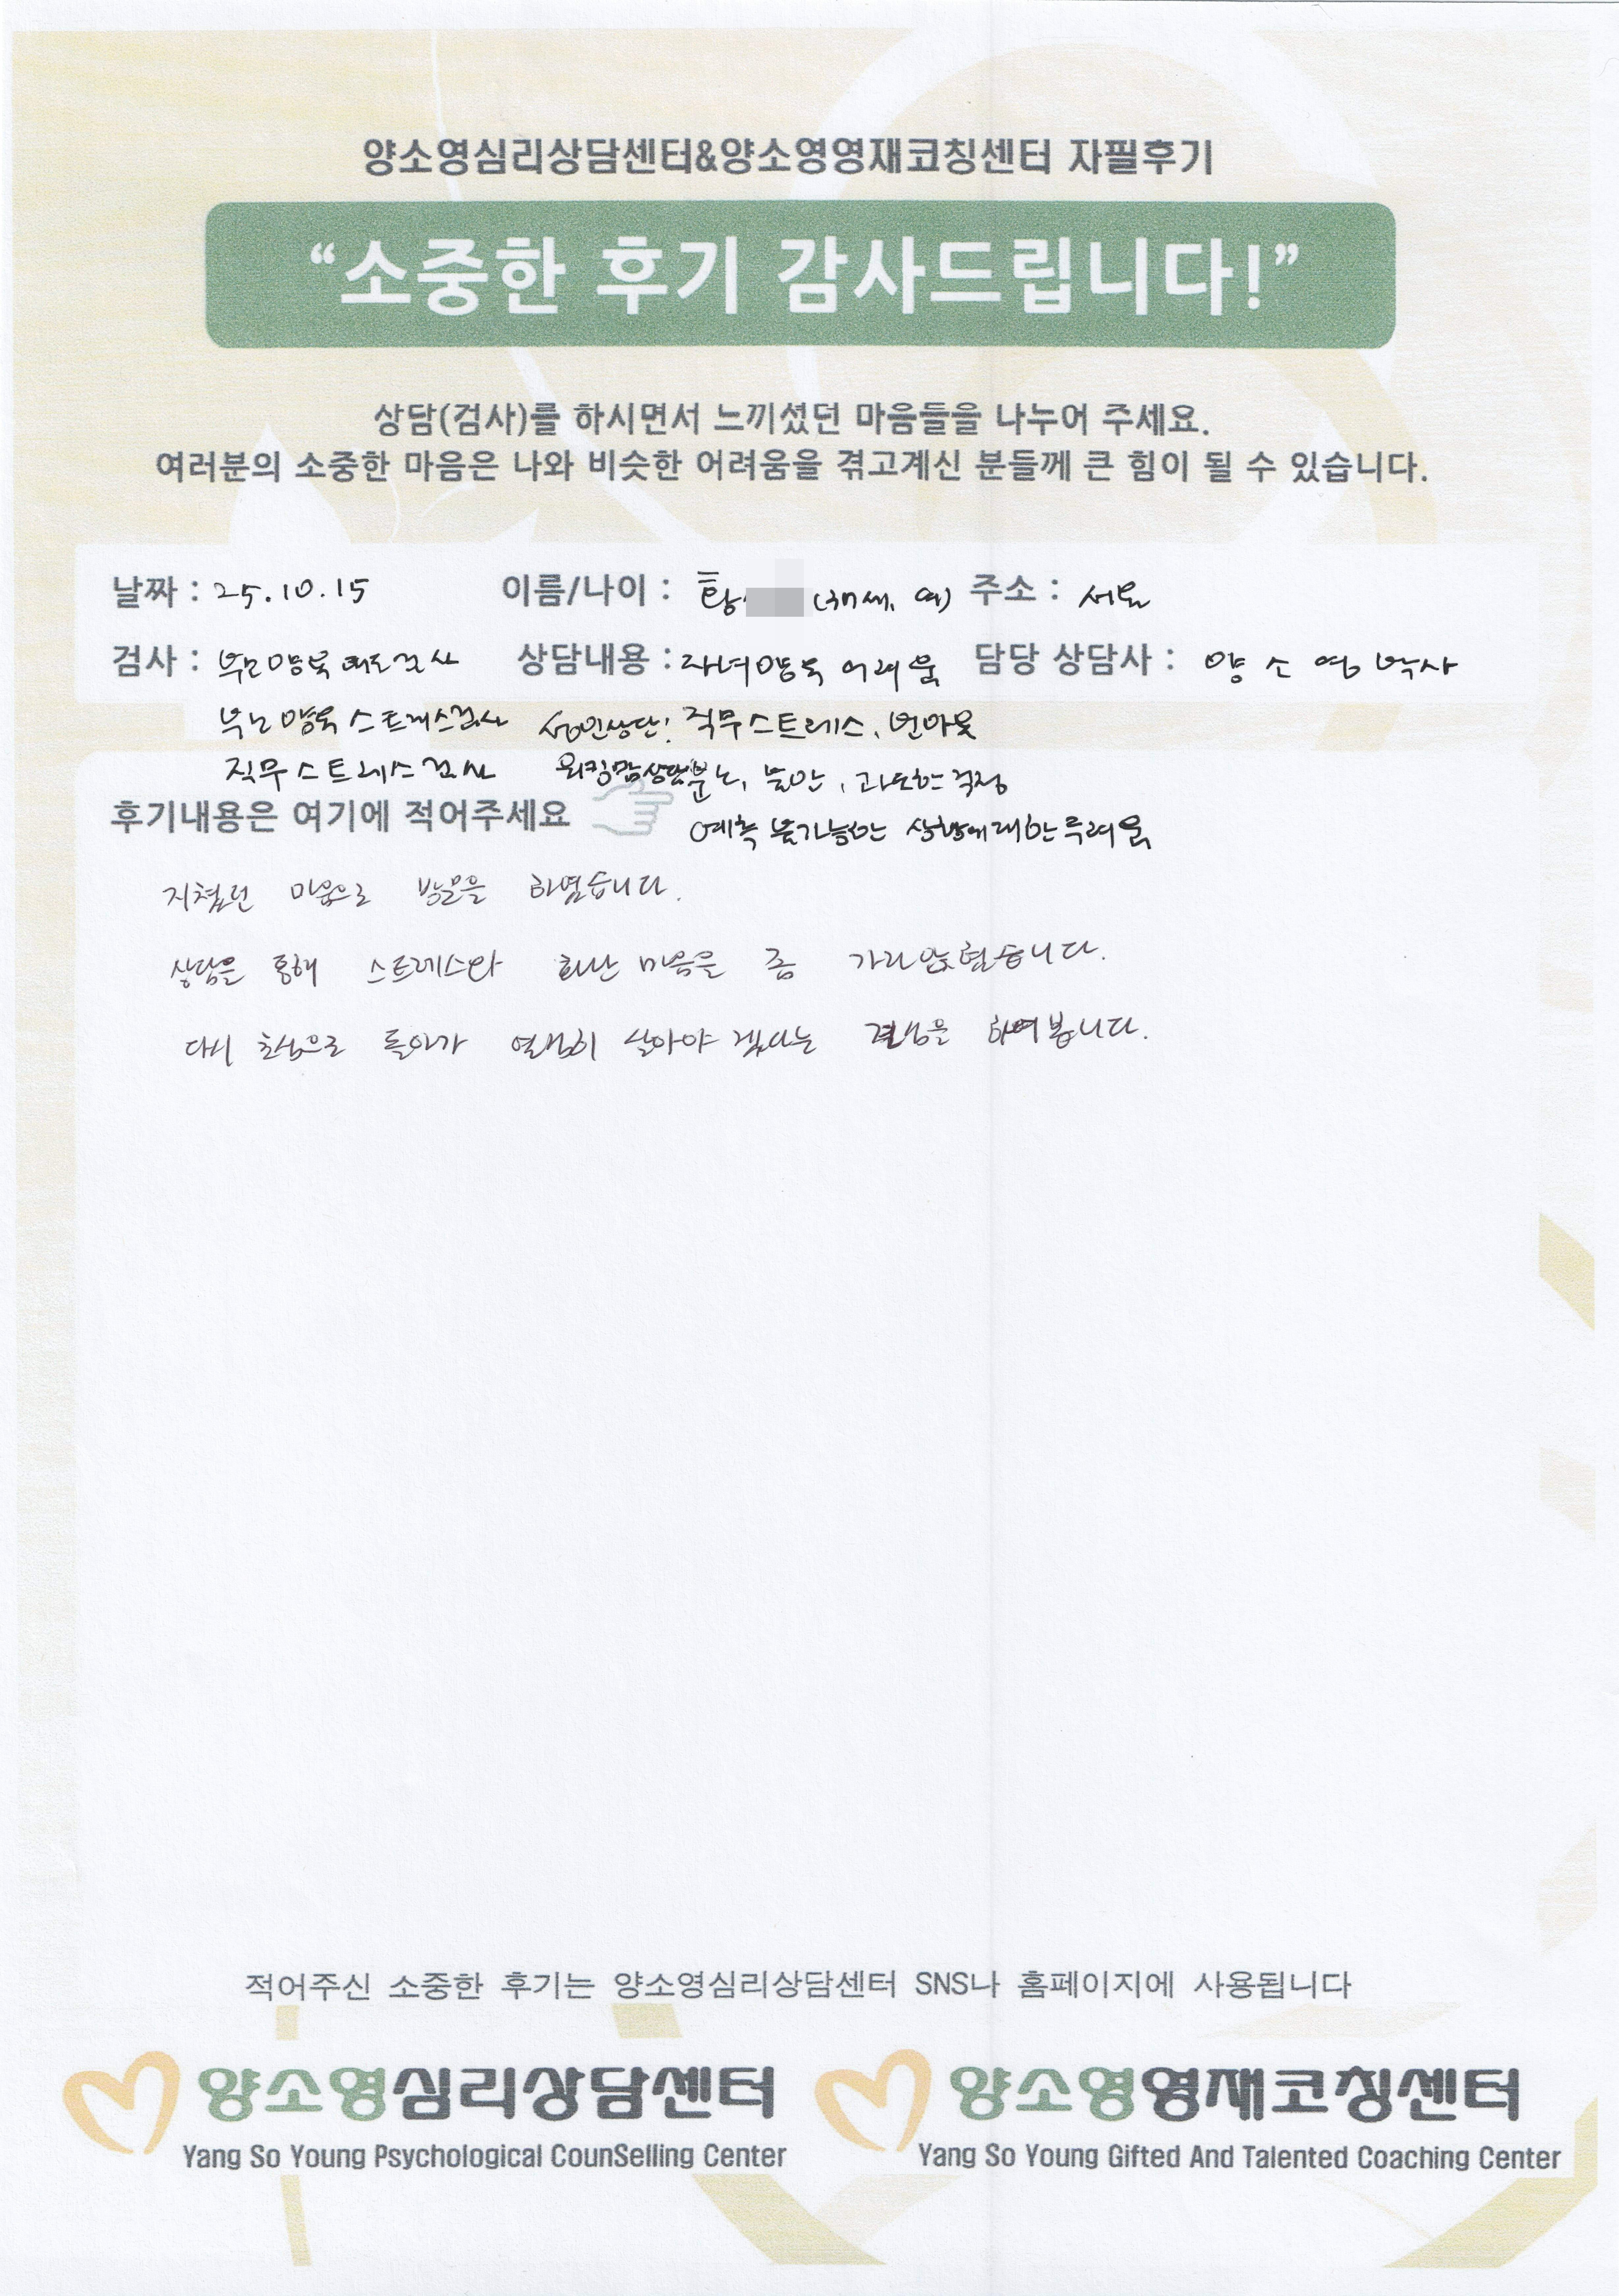 양소영심리상담센터&양소영영재코칭센터 자필후기
“소중한 후기 감사드립니다!”
상담(검사)를 하시면서 느끼셨던 마음들을 나누어 주세요.
여러분의 소중한 마음은 나와 비슷한 어려움을 겪고계신 분들께 큰 힘이 될 수 있습니다.
날짜 : 25.10.15 이름/나이 : 탕 여) 주소 : 서울
검사 : 부모양육태도검사 상담내용 : 자녀양육 어려움 담당 상담사 : 양소영 박사
부모양육스트레스검사 성인상담: 직무스트레스, 번아웃
직무스트레스검사 워킹맘상담 분노, 불안, 과도한 걱정
예측 불가능한 상황에대한 두려움
후기내용은 여기에 적어주세요
지쳤던 마음으로 방문을 하였습니다.
상담을 통해 스트레스와 화난 마음을 좀 가라앉혔습니다.
다시 초심으로 돌아가 열심히 살아야 겠다는 결심을 하여 봅니다.
적어주신 소중한 후기는 양소영심리상담센터 SNS나 홈페이지에 사용됩니다
양소영심리상담센터 양소영영재코칭센터
Yang So Young Psychological CounSelling Center Yang So Young Gifted And Talented Coaching Center